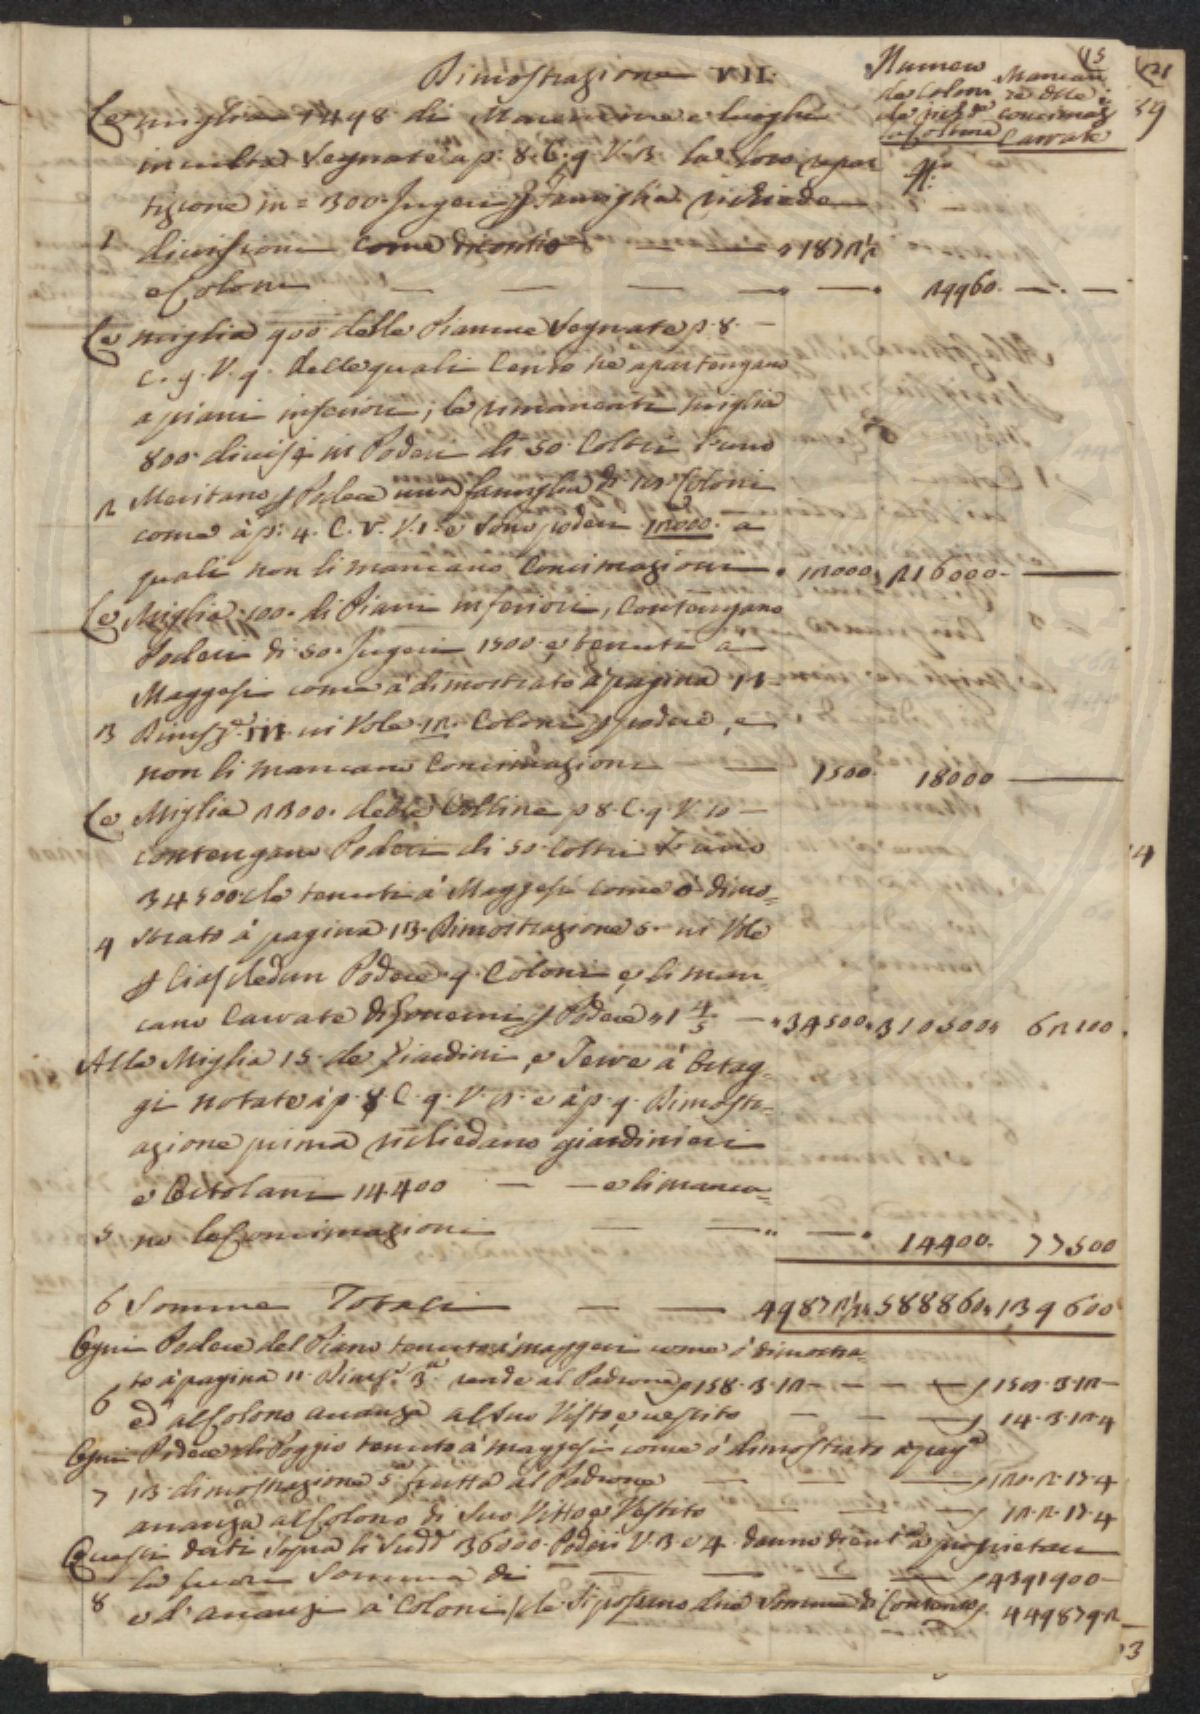 15
21
Dimostrazione VII.
Numero
de Coloni
Mancan
concimaz
Carrate
39
Le miglia 1498 di Maremme e luoghi
inculta segnate a p. 8. C. 9. V. 3. la loro repar
tizione in = 300. Jugeri Famiglia richiede
1 divisioni come di contro — — 1872 1/2
e Coloni — — — — 24960. —
Le miglia 900 delle Pianure segnate p. 8. —
C. 9. V. 9. delle quali Cento ne apartengano
a piani inferiori, le rimanenti miglia
800 divise in Poderi di 50. Coltri l'uno
2 Meritano p Podere una famiglia di Coloni
come à p: 4. C. V. V. 1. e sono poderi 12000. a
quali non li mancano Concimazioni 12000. 216000. —
Le Miglia 100. di Piani inferiori, Contengano
Poderi di 50. Jugeri 1500 e tenuti a
Maggesi come à dimostrato à pagina 11
3 Dimoz. III. vi Vole 12. Coloni p podere, e
non li mancano Concimazioni — 1500. 18000 —
Le Miglia 2300. delle Colline p 8. C. 9. V. 10 —
contengano Poderi di 50 Coltri l'uno
34500 che tenuti à Maggesi come è dimo=
4 strato à pagina 13. Dimostrazione 5. vi Vole
p Ciaschedun Podere 9. Coloni e li man
cano Carrate di p Podere 1 4/5 — 34500. 310500. 62100.
4
Alle Miglia 15. de Giardini, e Terre à Ortag=
gi notate à p. 8 C. 9. V. 2. e à p. 9. Dimostr=
azione prima richiedano giardinieri
e Ortolani 14400 — — e li manca=
5 no le Concimazioni — — 14400. 77500
6 Somme Totali — — 49872 1/2. 588860. 139600
Ogni Podere del Piano tenuto à maggesi come è dimostra=
to à pagina 11. Dimoz. 3a. rende al Padrone 158. 3. 12 — — — 152. 3. 12 —
6 ed al Colono avanza al suo Vitto e vestito — — 14. 3. 12. 4
Ogni Podere di Poggio tenuto à maggesi come è dimostrato a pag.
7 13 dimostrazione 5a frutta al Padrone — — 120. 2. 17. 4
avanza al Colono di suo Vitto e Vestito — — 12. 2. 17. 4
Questi dati sopra li Sudd. 36000. Poderi V. 3. e 4. danno à proprietari
la Somma di — — — 4391900 —
8 e d'avanzi à Coloni — 4498792
3